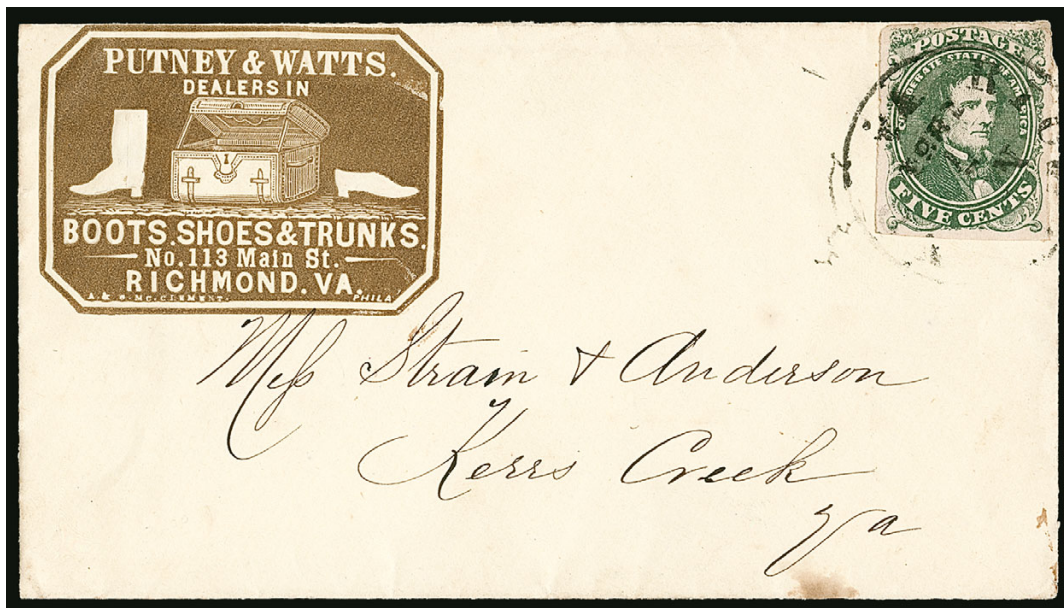 PUTNEY & WATTS.
DEALERS IN
BOOTS. SHOES & TRUNKS.
No. 113 Main St.
RICHMOND. VA.
PHILA
POSTAGE
STATES OF AMERICA
FIVE CENTS
Mess Strain & Anderson
Kerrs Creek
Va